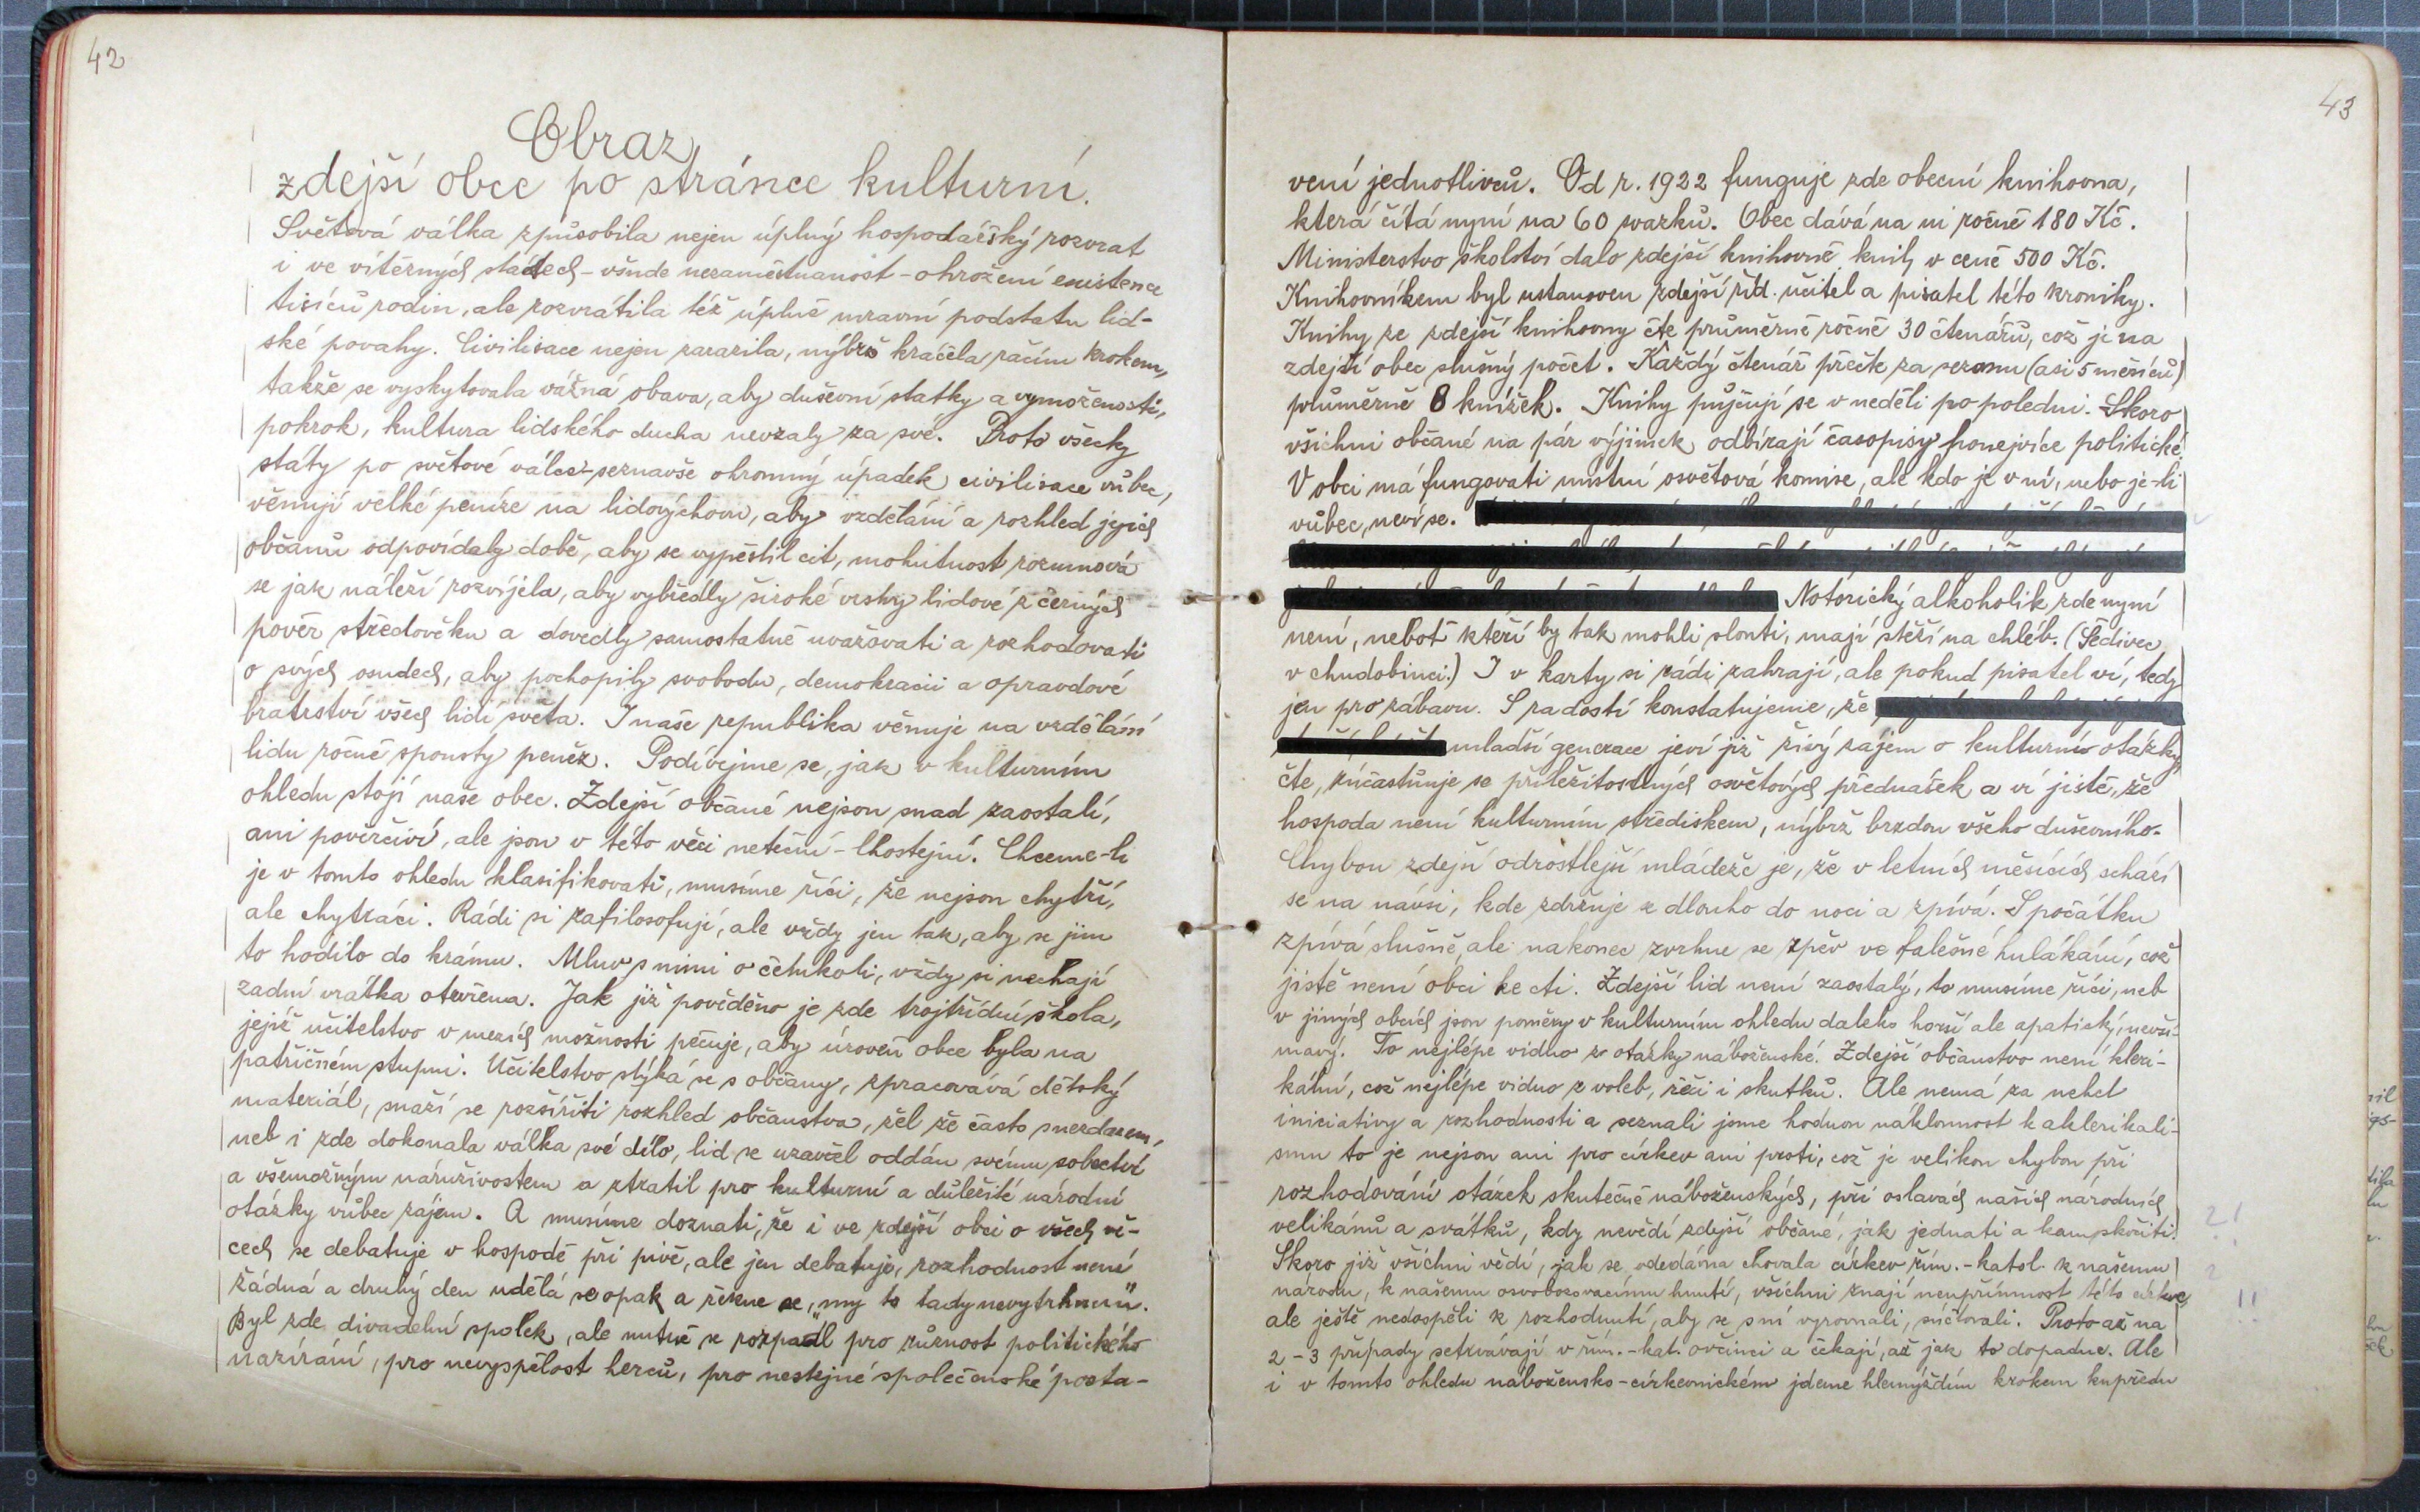 42
Obraz
zdejší obce po stránce kulturní.
Světová válka způsobila nejen úplný hospodářský rozvrat
i ve vítězných státech - všude nezaměstnanost - ohrožení existence
tisíců rodin, ale rozvrátila též úplně mravní podstatu lid-
ské povahy. Civilisace nejen zarazila, nýbrž kráčela račím krokem,
takže se vyskytovala vážná obava, aby duševní statky a vymoženosti,
pokrok, kultura lidského ducha nevzaly za své. Proto všecky
státy po světové válce - seznavše ohromný úpadek civilisace vůbec,
věnují velké peníze na lidovýchovu, aby vzdělání a rozhled jejich
občanů odpovídaly době, aby se vypěstil cit, mohutnost rozumová
se jak náleží rozvíjela, aby vybředly široké vrstvy lidové z černých
pověr středověku a dovedly samostatně uvažovati a rozhodovati
o svých osudech, aby pochopily svobodu, demokracii a opravdové
bratrství všech lidí světa. I naše republika věnuje na vzdělání
lidu ročně spousty peněz. Podívejme se, jak v kulturním
ohledu stojí naše obec. Zdejší občané nejsou snad zaostalí,
ani pověrčiví, ale jsou v této věci neteční - lhostejní. Chceme-li
je v tomto ohledu klasifikovati, musíme říci, že nejsou chytří,
ale chytráci. Rádi si zafilosofují, ale vždy jen tak, aby se jim
to hodilo do krámu. Mluv s nimi o čemkoli, vždy si nechají
zadní vrátka otevřena. Jak již pověděno je zde trojtřídní škola,
jejíž učitelstvo v mezích možnosti pečuje, aby úroveň obce byla na
patřičném stupni. Učitelstvo stýká se s občany, zpracovává dětský
materiál, snaží se rozšířiti rozhled občanstva, žel že často s nezdarem,
neb i zde dokonala válka své dílo, lid se uzavřel oddán svému sobectví
a všemožným náruživostem a ztratil pro kulturní a důležité národní
otázky vůbec zájem. A musíme doznati, že i ve zdejší obci o všech vě-
cech se debatuje v hospodě při pivě, ale jen debatuje, rozhodnost není
žádná a druhý den udělá se opak a řekne se, „my to tady nevytrhnem".
Byl zde divadelní spolek, ale nutně se rozpadl pro různost politického
nazírání, pro nevyspělost herců, pro nestejné společenské posta-
43
vení jednotlivců. Od r. 1922 funguje zde obecní knihovna,
která čítá nyní na 60 svazků. Obec dává na ni ročně 180 Kč.
Ministerstvo školství dalo zdejší knihovně knih v ceně 500 Kč.
Knihovníkem byl ustanoven zdejší říd. učitel a pisatel této kroniky.
Knihy ze zdejší knihovny čte průměrně ročně 30 čtenářů, což je na
zdejší obec slušný počet. Každý čtenář přečte za sezonu (asi 5 měsíců)
průměrně 8 knížek. Knihy půjčují se v neděli po poledni. Skoro
všichni občané na pár výjimek odbírají časopisy ponejvíce politické.
V obci má fungovati místní osvětová komise, ale kdo je v ní, nebo je-li
vůbec, neví se.
Notorický alkoholik zde nyní
není, neboť kteří by tak mohli slouti, mají stěží na chléb. (Šedivec
v chudobinci.) I v karty si rádi zahrají, ale pokud pisatel ví, tedy
jen pro zábavu. S radostí konstatujeme, že
mladší generace jeví již živý zájem o kulturní otázky,
čte, zúčastňuje se příležitostných osvětových přednášek a ví jistě, že
hospoda není kulturním střediskem, nýbrž brzdou všeho duševního.
Chybou zdejší odrostlejší mládeže je, že v letních měsících schází
se na návsi, kde zdržuje se dlouho do noci a zpívá. S počátku
zpívá slušně, ale nakonec zvrhne se zpěv ve falešné hulákání, což
jistě není obci ke cti. Zdejší lid není zaostalý, to musíme říci, neb
v jiných obcích jsou poměry v kulturním ohledu daleko horší ale apatický, nevší-
mavý. To nejlépe vidno z otázky náboženské. Zdejší občanstvo není kleri-
kální, což nejlépe vidno z voleb, řečí i skutků. Ale nemá za nehet
iniciativy a rozhodnosti a seznali jsme hodnou náklonnost k aklerikali-
smu to je nejsou ani pro církev ani proti, což je velikou chybou při
rozhodování otázek skutečně náboženských, při oslavách našich národních
velikánů a svátků, kdy nevědí zdejší občané, jak jednati a kam skočiti.
2!
Skoro již všichni vědí, jak se odedávna chovala církev řím.-katol. k našemu
?
národu, k našemu osvobozovacímu hnutí, všichni znají neupřímnost této církve,
!!
ale ještě nedospěli k rozhodnutí, aby se s ní vyrovnali, súčtovali. Proto až na
2-3 případy setrvávají v řím.-kat. ovčinci a čekají, až jak to dopadne. Ale
i v tomto ohledu nábožensko-církevnickém jdeme hlemýždím krokem kupředu